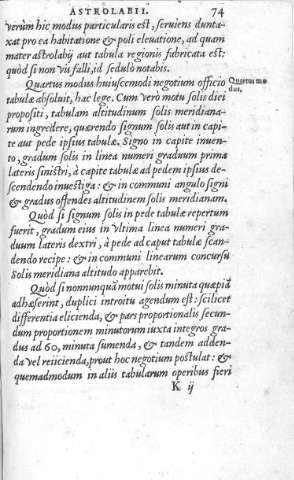 ASTROLABII. 74
verùm hic modus particularis est, seruiens dunta-
xat pro ea habitatione & poli eleuatione, ad quam
mater astrolabij aut tabula regionis fabricata est:
quòd si non vis falli, id sedulò notabis.
Quartus modus huiuscemodi negotium officio
tabulæ absoluit, hac lege. Cum verò motu solis diei
propositi, tabulam altitudinum solis meridiana-
rum ingredere, quærendo signum solis aut in capi-
te aut pede ipsius tabulæ. Signo in capite inuen-
to, gradum solis in linea numeri graduum prima
lateris sinistri, à capite tabulæ ad pedem ipsius de-
scendendo inuestiga: & in communi angulo signi
& gradus offendes altitudinem solis meridianam.
Quòd si signum solis in pede tabulæ repertum
fuerit, gradum eius in vltima linea numeri gra-
duum lateris dextri, à pede ad caput tabulæ scan-
dendo recipe: & in communi linearum concursu
Solis meridiana altitudo apparebit.
Quòd si nonnunquã motui solis minuta quæpiã
adhæserint, duplici introitu agendum est: scilicet
differentia elicienda, & pars proportionalis secun-
dum proportionem minutorum iuxta integros gra-
dus ad 60, minuta sumenda, & tandem adden-
da vel reiicienda, prout hoc negotium postulat: &
quemadmodum in aliis tabularum operibus fieri
K ij
Quartus mo
dus.